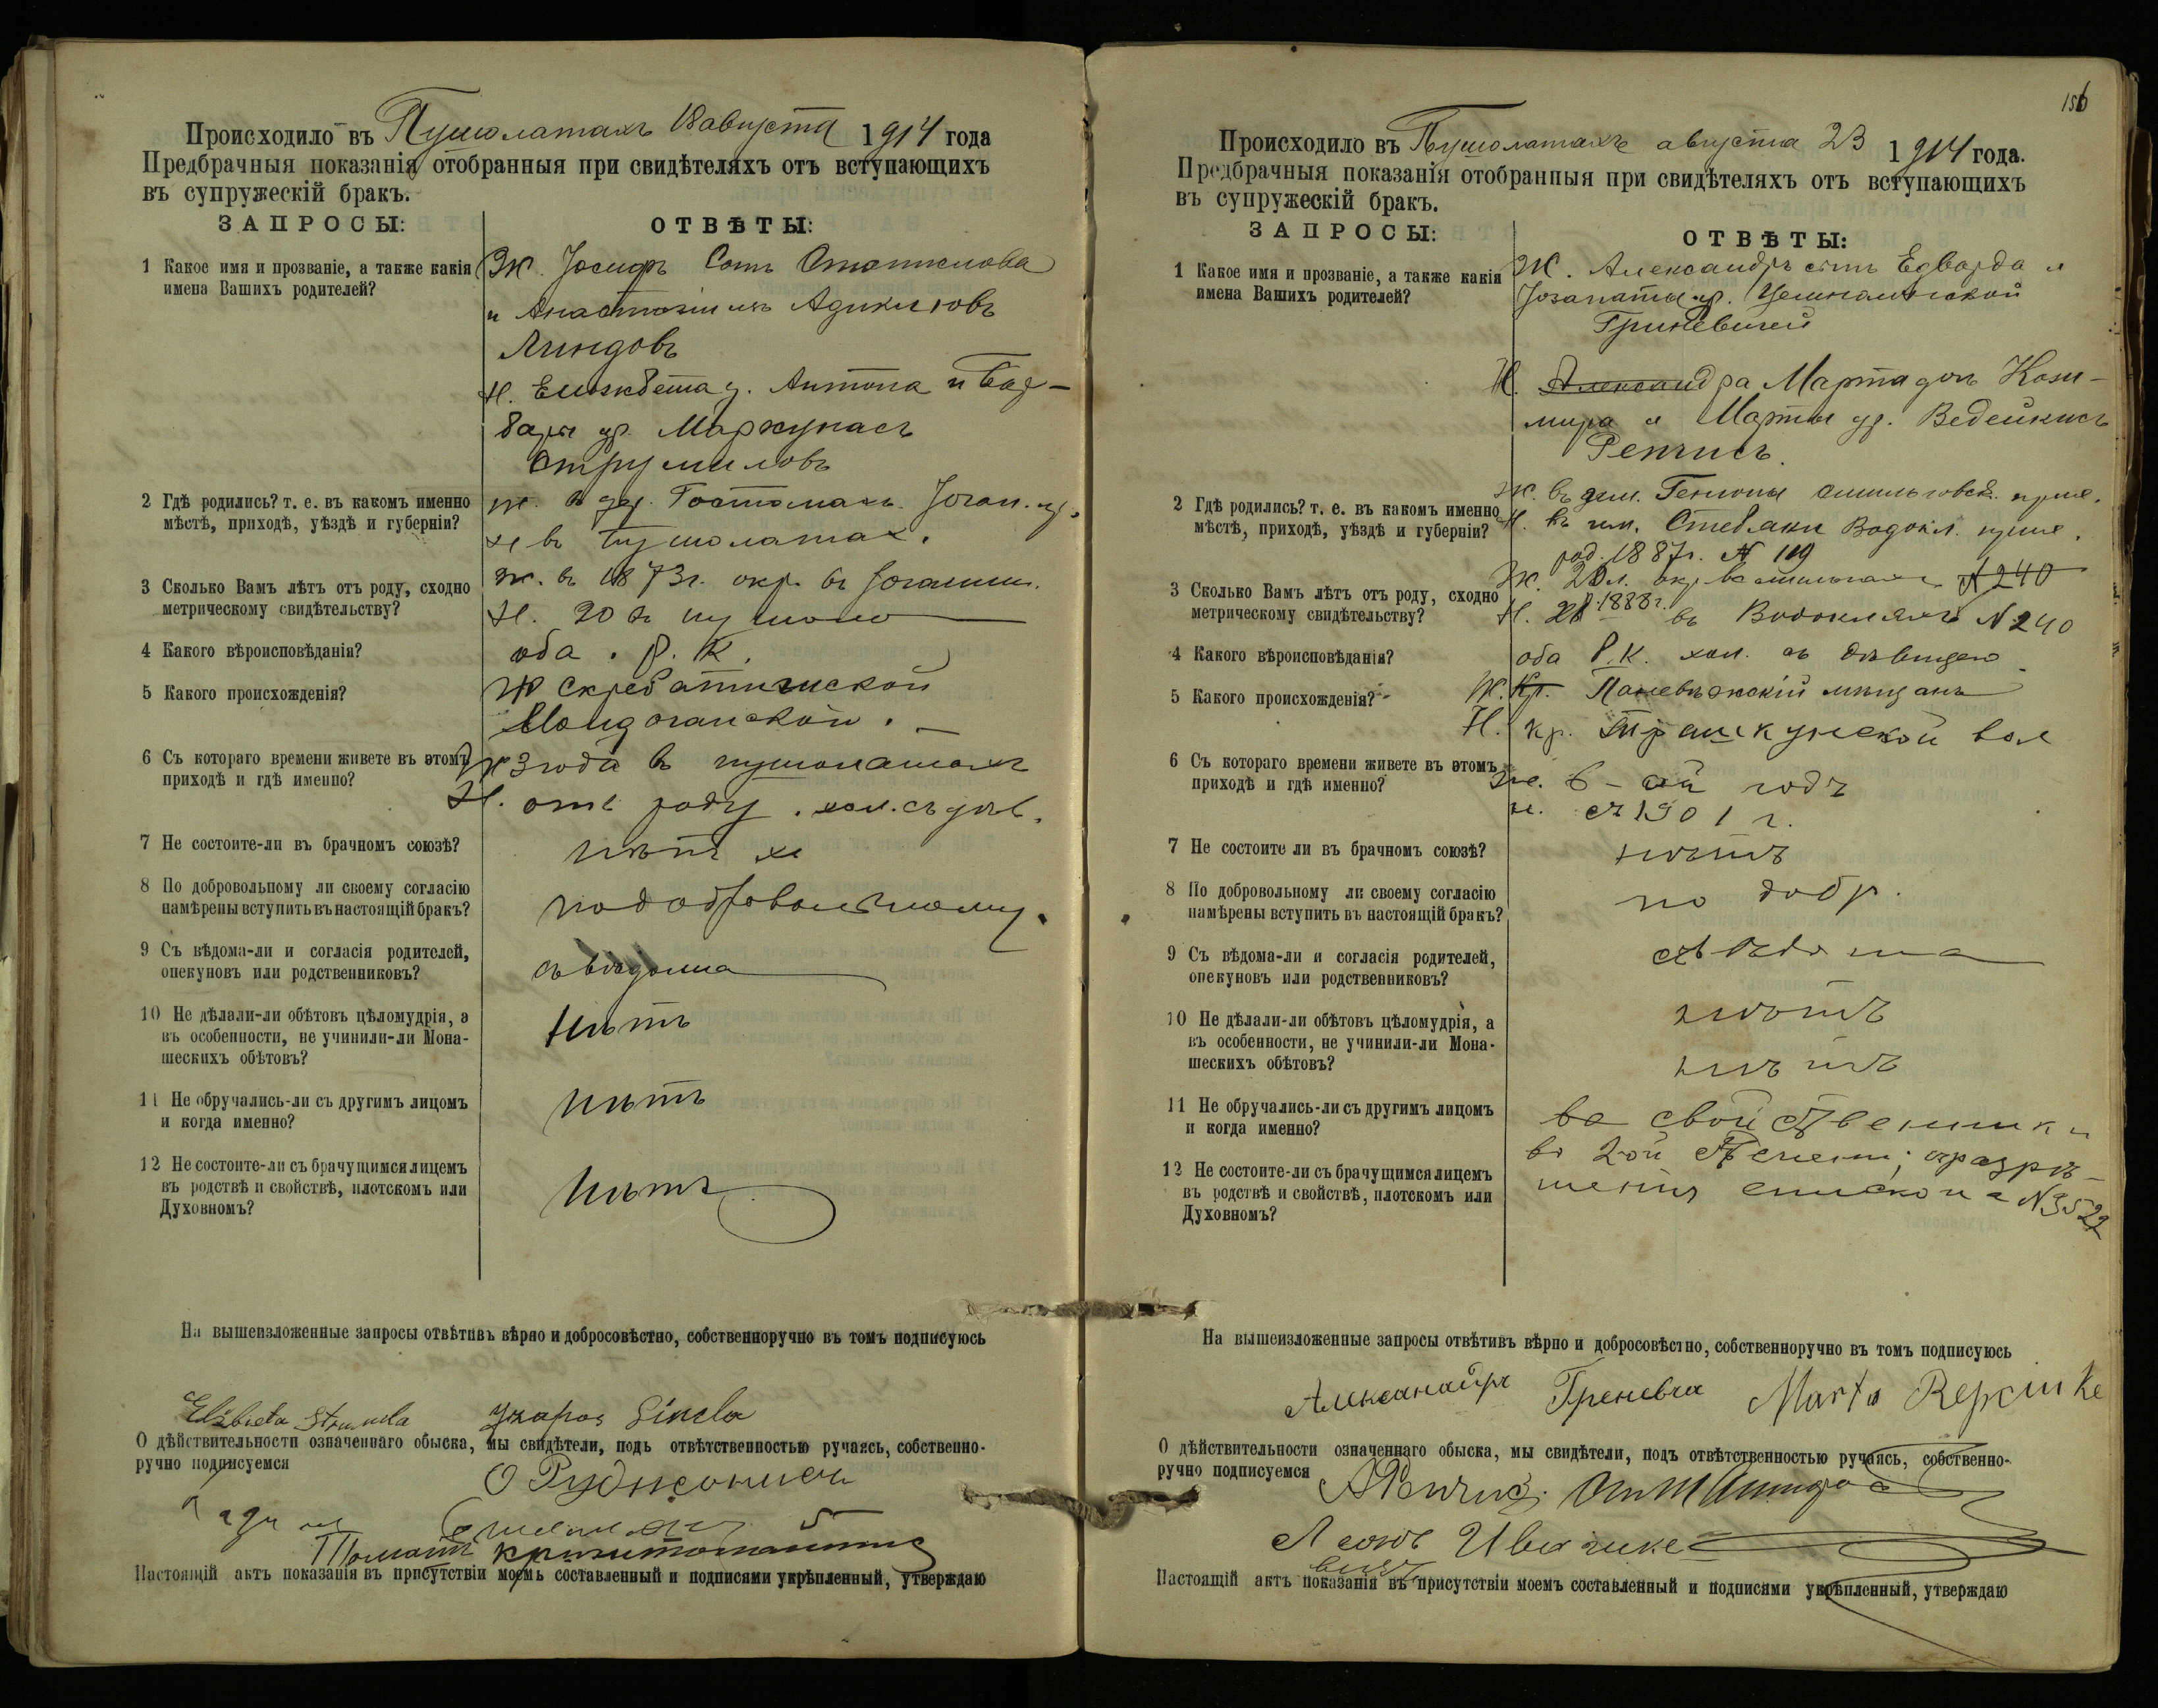 Происходило въ Пушолатахъ 18 августа 1914 года
Предбрачныя показанія отобранныя при свидѣтеляхъ отъ вступающихъ
въ супружескій бракъ.
ЗАПРОСЫ: ОТВѢТЫ:
1 Какое имя и прозваніе, а также какія
имена Вашихъ родителей?
Ж. Іосифъ Сынъ Станислова
и Анастазіи
Линдовъ
Н. Елижбета д. Антона и Бар-
бары ур. Маркунасъ
Струмиловъ
2 Гдѣ родились? т. е. въ какомъ именно
мѣстѣ, приходѣ, уѣздѣ и губерніи?
Ж. въ дер.
Н въ Пушолатах.
3 Сколько Вамъ лѣтъ отъ роду, сходно
метрическому свидѣтельству?
Ж. в 1873г. окр. въ
Н. 20 в пушоло
4 Какого вѣроисповѣданія?
оба . Р. К.
5 Какого происхожденія?
Ж Скребатишской
6 Съ котораго времени живете въ этомъ
приходѣ и гдѣ именно?
Ж 3 года в пушолатахъ
Н. отъ роду . хол. съ дѣв.
7 Не состоите-ли въ брачномъ союзѣ?
нѣтъ
8 По добровольному ли своему согласію
намѣрены вступить въ настоящій бракъ?
подобровольному.
9 Съ вѣдома-ли и согласія родителей,
опекуновъ или родственниковъ?
съ вѣдома
10 Не дѣлали-ли обѣтовъ цѣломудрія, а
въ особенности, не учинили-ли Мона-
шескихъ обѣтовъ?
нѣтъ
11 Не обручались-ли съ другимъ лицомъ
и когда именно?
нѣтъ
12 Не состоите-ли съ брачущимся лицемъ
въ родствѣ и свойствѣ, плотскомъ или
Духовномъ?
нѣтъ
На вышеизложенные запросы отвѣтивъ вѣрно и добросовѣстно, собственноручно въ томъ подписуюсь
Elzbieta Strumila
О дѣйствительности означеннаго обыска, мы свидѣтели, подь отвѣтственностью ручаясь, собственно-
ручно подписуемся
Настоящій актъ показанія въ присутствіи моемъ составленный и подписями укрѣпленный, утверждаю
156
Происходило въ Пушолатахъ августа 23 1914 года.
Предбрачныя показанія отобранныя при свидѣтеляхъ отъ вступающихъ
въ супружескій бракъ.
ЗАПРОСЫ: ОТВѢТЫ:
1 Какое имя и прозваніе, а также какія
имена Вашихъ родителей?
Ж. Александръ сынъ Едварда и
Іозапаты ур.
Гриневичей
Н. Александра Марта дочь Кази-
мира и Марты ур. Ведейкисъ
Ренчисъ.
2 Гдѣ родились? т. е. въ какомъ именно
мѣстѣ, приходѣ, уѣздѣ и губерніи?
Ж. въ
Н. въ им. Стебяки Водокл. прих.
род. 1887г. № 119
3 Сколько Вамъ лѣтъ отъ роду, сходно
метрическому свидѣтельству?
№ 240
р. 1888г. въ Водокляхъ № 240
4 Какого вѣроисповѣданія?
оба Р.К. хол. съ дѣвицею
5 Какого происхожденія?
Ж. Кр. Паневѣжскій мѣщанъ
Н. кр. Трашкунской вол
6 Съ котораго времени живете въ этомъ
приходѣ и гдѣ именно?
Ж. 6-ой годъ
Н. съ 1901 г.
7 Не состоите ли въ брачномъ союзѣ?
нѣтъ
8 По добровольному ли своему согласію
намѣрены вступить въ настоящій бракъ?
по добр.
9 Съ вѣдома-ли и согласія родителей,
опекуновъ или родственниковъ?
съ вѣдома
10 Не дѣлали-ли обѣтовъ цѣломудрія, а
въ особенности, не учинили-ли Мона-
шескихъ обѣтовъ?
нѣтъ
нѣтъ
11 Не обручались-ли съ другимъ лицомъ
и когда именно?
12 Не состоите-ли съ брачущимся лицемъ
въ родствѣ и свойствѣ, плотскомъ или
Духовномъ?
во 2-ой степени; съ разрѣ-
шенія епископа № 3522
На вышеизложенные запросы отвѣтивъ вѣрно и добросовѣстно, собственноручно въ томъ подписуюсь
Александръ Греневич Marta
О дѣйствительности означеннаго обыска, мы свидѣтели, подъ отвѣтственностью ручаясь, собственно-
ручно подписуемся
А Ренчис.
Настоящій актъ показанія въ присутствіи моемъ составленный и подписями укрѣпленный, утверждаю